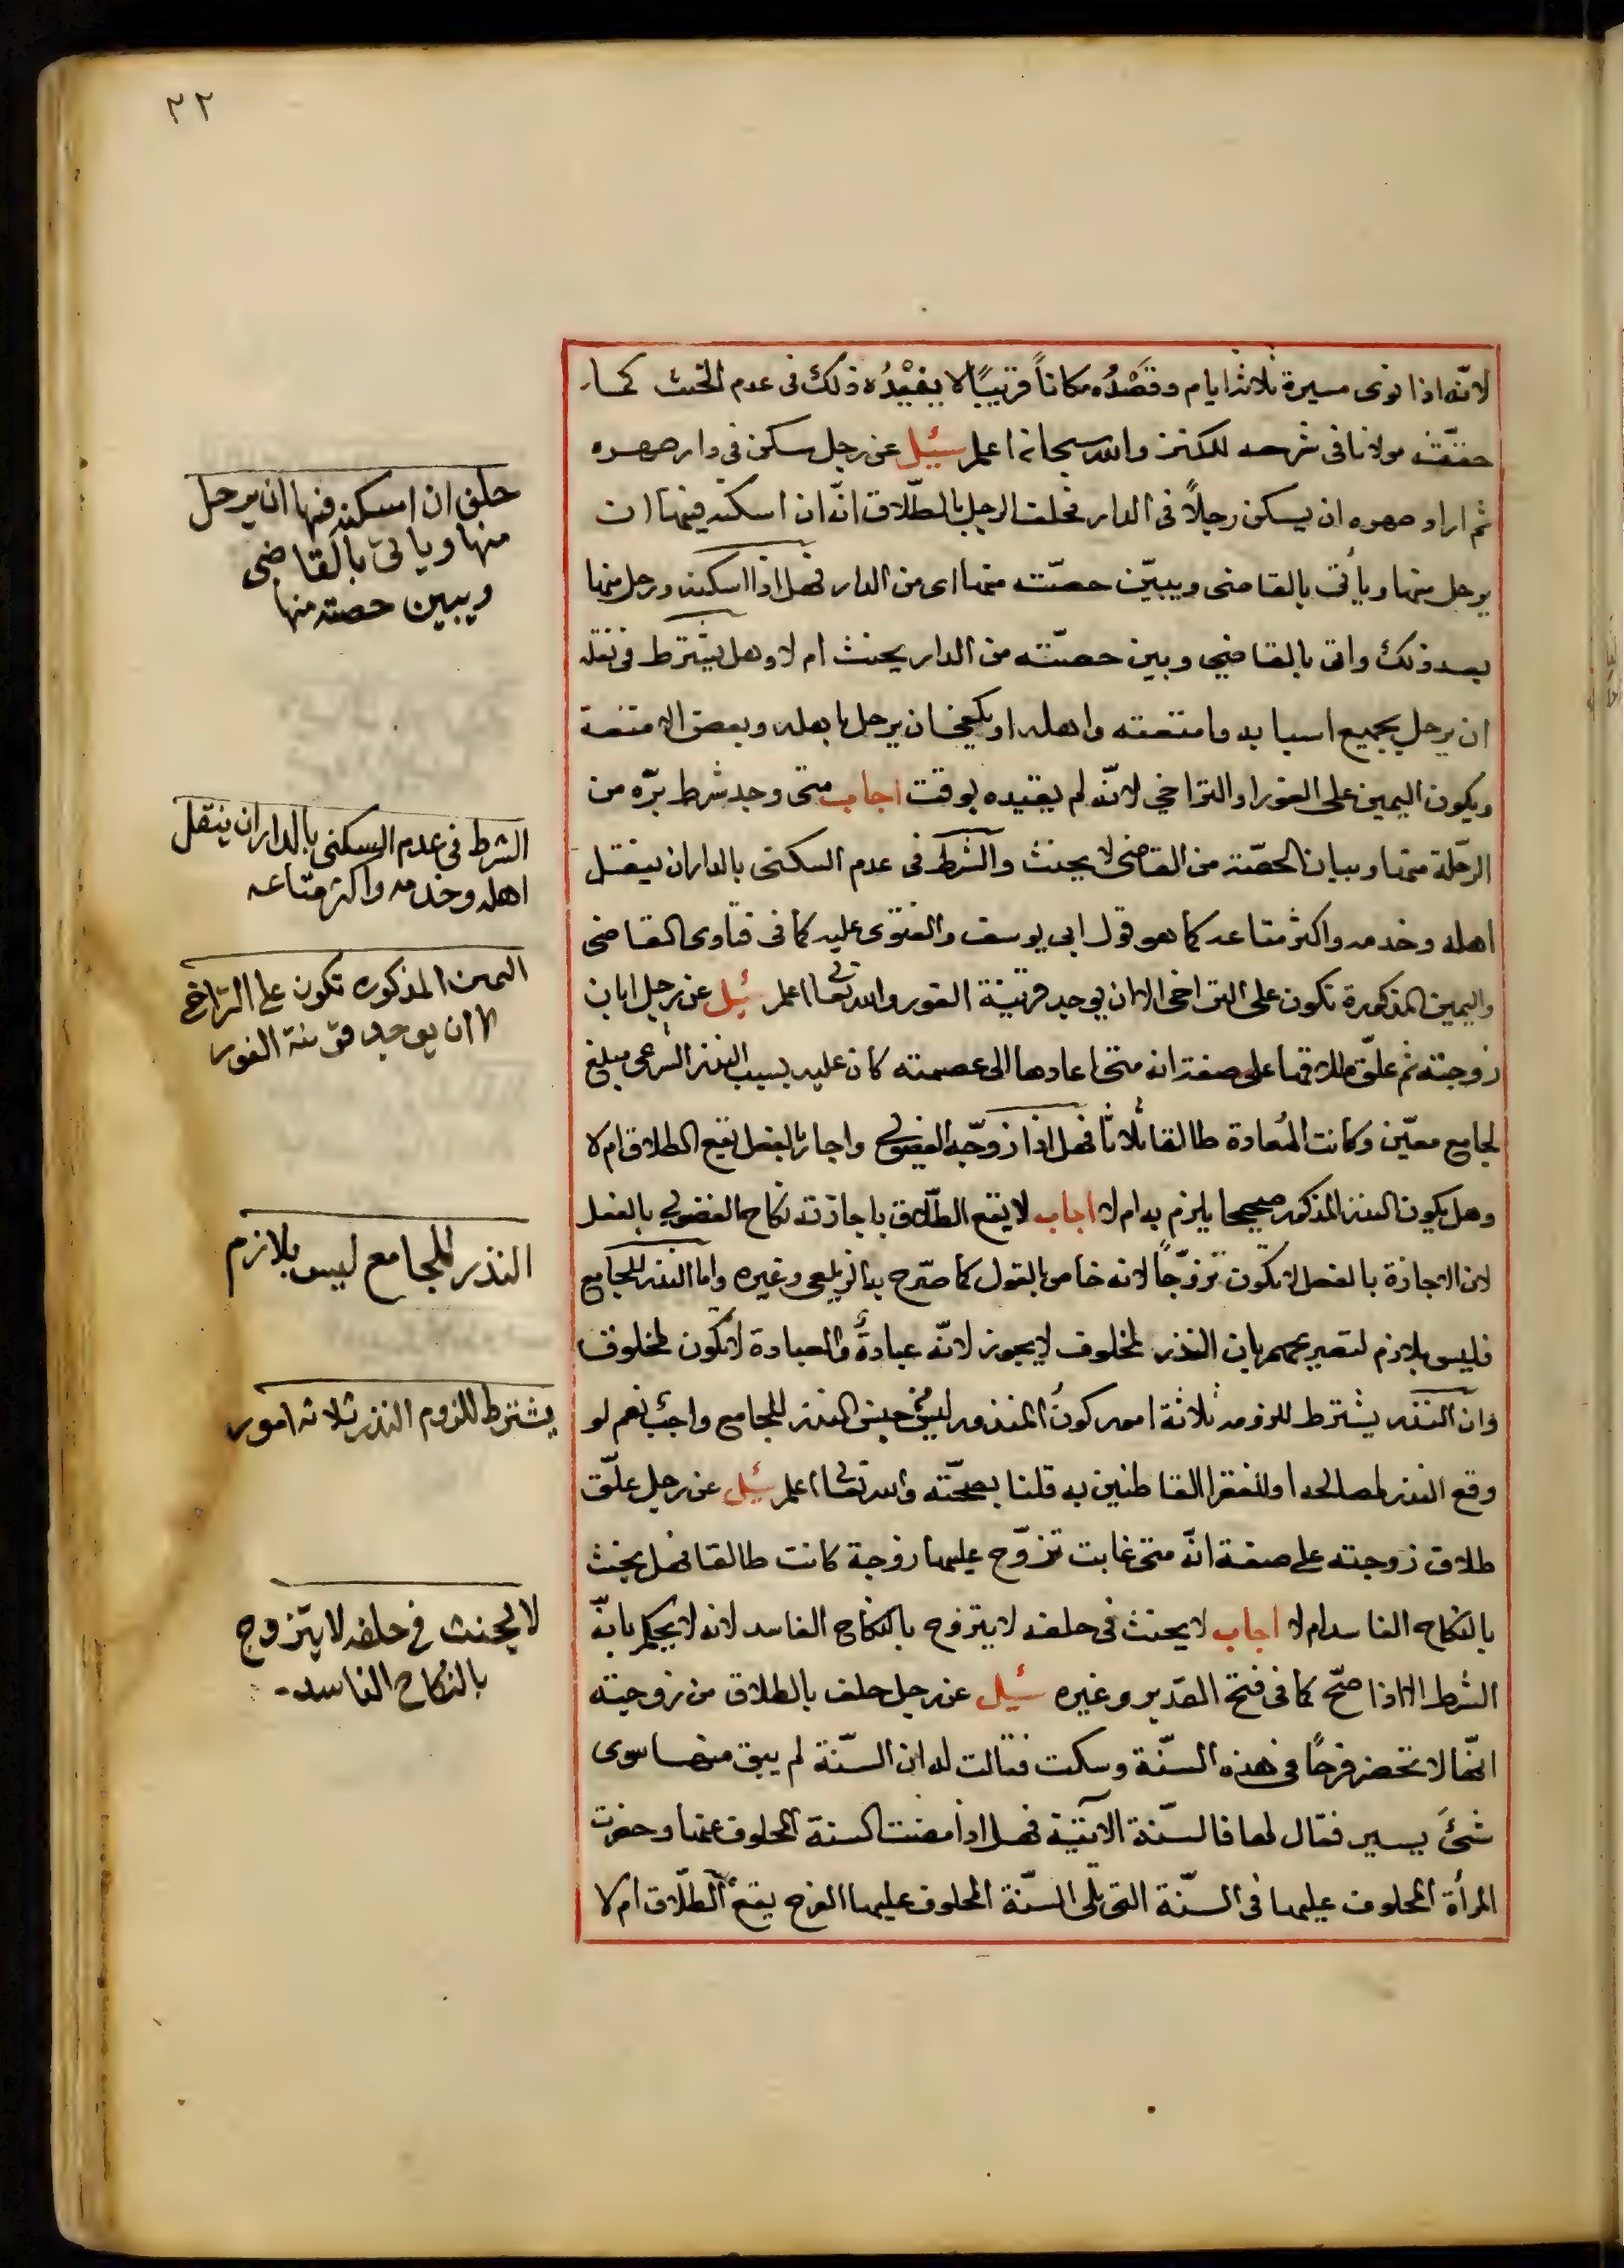 ٢٢
لانّه اذا نوى مسيرة ثلاثة ايام وقَصْدُه مكاناً قريبًا لا يفيْدُه ذلك فى عدم الحنث كما
حققه مولانا فى شرحه للكنز والله سبحانه اعلم سُئِل عن رجل سكن فى دار صهره
ثم اراد صهره ان يسكن رجلاً فى الدار فحلف الرجل بالطّلاق انّه ان اسكنه فيها ان
يرحل منها ويأتى بالقاضى ويبيّن حصّته منها اى من الدار فهل اذا اسكنه ورحل منها
بعد ذلك واتى بالقاضي وبين حصّته من الدار يحنث ام لا وهل يشترط فى نقله
ان يرحل بجميع اسبابه وامتعته واهله او يكفى ان يرحل باهله وبعض الامتعة
ويكون اليمين على الفور او التراخي لانّه لم يقيده بوقت اجاب متى وجد شرط برّه من
الرحلة منها وبيان الحصّة من القاضى لا يحنث والشرط فى عدم السكنى بالدار ان ينقل
اهله وخدمه واكثر متاعه كما هو قول ابى يوسف والفتوى عليه كما فى فتاوى القاضى
واليمين المذكورة تكون على التراخى الا ان يوجد قرينة الفور والله تعالى اعلم سُئِل عن رجل ابان
زوجته ثم علّق طلاقها على صفة انه متى اعادها الى عصمته كان عليه بسبب النذر الشرعى مبلغ
لجامع معيّن وكانت المُعادة طالقا ثلاثًا فهل اذا زوّجه الفضولى واجاز بالفعل يقع الطلاق ام لا
وهل يكون النذر المذكور صحيحا يلزم به ام لا اجاب لا يقع الطّلاق باجازته نكاح الفضولي بالفعل
لان الاجازة بالفعل لا تكون تزوّجاً لانه خاص بالقول كما صرّح به الزيلعى وغيره واما النذر للجامع
فليس بلازم لتصريحهم بان النذر لمخلوق لا يجوز لانّه عبادةٌ والعبادة لا تكون لمخلوق
وان النذر يشترط للزومه ثلاثة امور كونُ المنذور ليس من جنس النذر للجامع واجبٌ نعم لو
وقع النذر لمصالحه او للفقرا القاطنين به قلنا بصحّته والله تعالى اعلم سُئِل عن رجل علّق
طلاق زوجته على صفة انّه متى غابت تزوّج عليها زوجة كانت طالقا فهل يحنث
بالنكاح الفاسد ام لا اجاب لا يحنث فى حلفه لا يتزوج بالنكاح الفاسد لانه لا يحكم بانّه
الشرط الا اذا صحّ كما فى فتح القدير وغيره سُئِل عن رجل حلف بالطلاق من زوجته
انّها لا تحضر فرحًا فى هذه السنّة وسكت فقالت له ان السنّة لم يبق منها سوى
شئ يسير فقال لها فالسنّة الآتية فهل اذا مضت السنة المحلوف عنها وحضرت
المرأة المحلوف عليها فى السنّة التى تلى السنّة المحلوف عليها الفرح يقع الطّلاق ام لا
حلف ان اسكنه فيها ان يرحل
منها وياتى بالقاضى
ويبين حصته منها
الشرط فى عدم السكنى بالدار ان ينقل
اهله وخدمه واكثر متاعه
اليمين المذكوره تكون على التراخى
الا ان يوجد قرينة الفور
النذر للجامع ليس بلازم
يشترط للزوم النذر ثلاثه امور
لا يحنث فى حلفه لا يتزوج
بالنكاح الفاسد